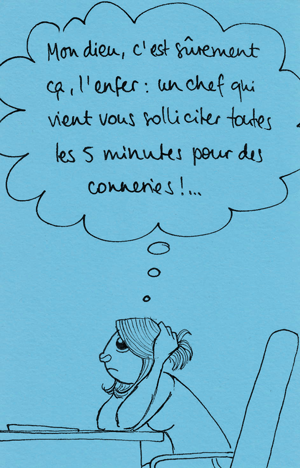 Mon dieu, c'est sûrement
ça, l'enfer : un chef qui
vient vous solliciter toutes
les 5 minutes pour des
conneries !...